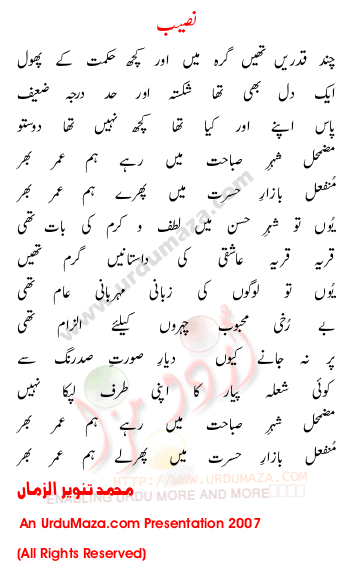 نصیب
چند قدریں تھیں گرہ میں اور کچھ حکمت کے پھول
ایک دل بھی تھا شکستہ اور حد درجہ ضعیف
پاس اپنے اور کیا تھا کچھ نہیں تھا دوستو
مضمحل شہرِ صباحت میں رہے ہم عمر بھر
مُنفعل بازارِ حسرت میں پھرے ہم عمر بھر
یُوں تو شہرِ حسن میں لطف و کرم کی بات تھی
قریہ قریہ عاشقی کی داستانیں گرم تھیں
یُوں تو لوگوں کی زبانی مہربانی عام تھی
بے رُخی محبوب چہروں کیلئے الزام تھی
پر نہ جانے کیوں دیارِ صورتِ صدرنگ سے
کوئی شعلہ پیار کا اپنی طرف لپکا نہیں
مضمحل شہرِ صباحت میں رہے ہم عمر بھر
مُنفعل بازارِ حسرت میں پھرلے ہم عمر بھر
محمد تنویر الزماں
An UrduMaza.com Presentation 2007
(All Rights Reserved)
www.urdumaza.com
اردو مزا
WWW.URDUMAZA.COM
ENABLING URDU MORE AND MORE